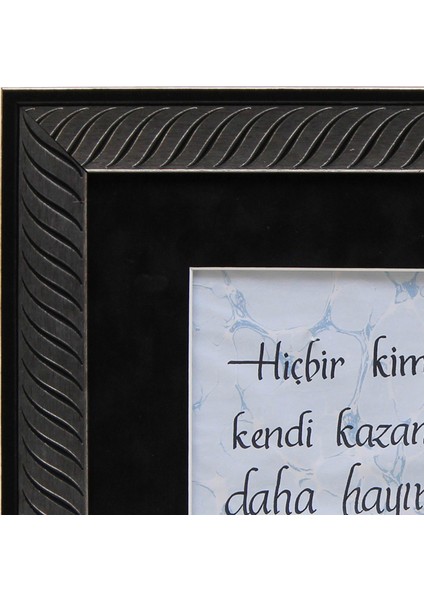 Hiçbir kim
kendi kazan
daha hayır